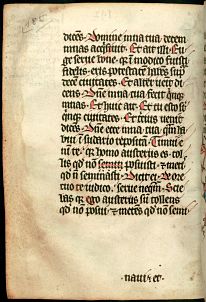 dicens. Domine mna tua decem
mnas acquisivit. Et ait illi. Eu
ge serve bone. qr i modico fuisti
fidelis. eris potestatem habes sup
decem civitates. Et alter venit di
cens. Dne mna tua fecit quinqz
mnas. Et huic ait. Et tu esto sup
quinqz civitates. Et alter venit
dicens. Dne ecce mna tua. qm ha
bui i sudario repositam. Timui e
ni te. qr homo austerus es. tol
lis qd no posuisti. et metis
qd no seminasti. Dicit ei. De ore
tuo te iudico. serve nequam. Scie
bas qr ego austerus su tollens
qd no posui. et metens qd no semi
navi et